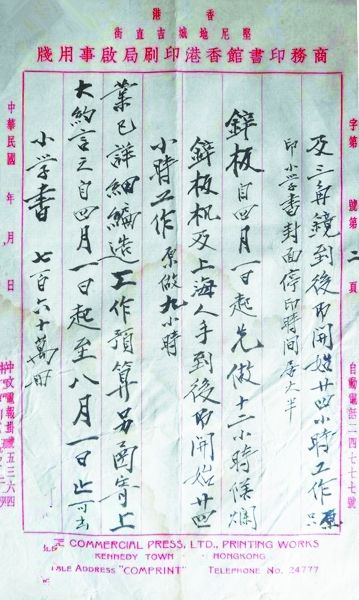 香港
堅尼地城吉直街
商務印書館香港印刷局啟事用牋
字第 號第二頁
及三角鏡到後即開始廿四小時工作
印小學書封面停印時間居大半
鋅板自四月一日起先做十二小時候爛
鋅板机及上海人手到後即開始廿四
小時工作 原做九小時
業已詳細編造工作預算另函寄上
大約言之自四月一日起至八月一日止可出
小学書 七百六十萬冊
中華民國 年 月 日
自動電話二四七七七
中文電報掛號五三六四
THE COMMERCIAL PRESS, LTD., PRINTING WORKS
KENNEDY TOWN HONGKONG
CABLE ADDRESS "COMPRINT" TELEPHONE NO. 24777